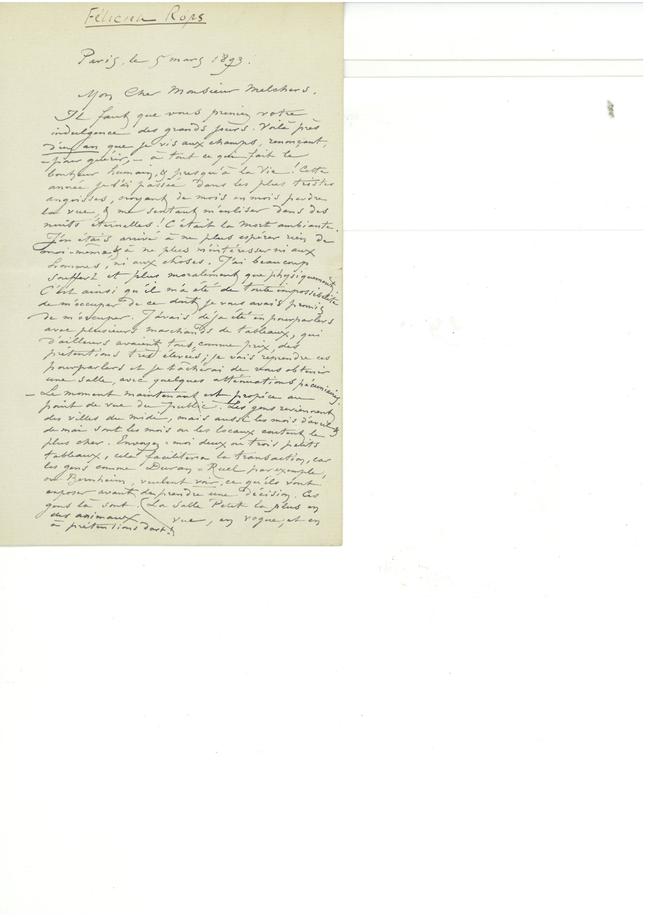 Félicien Rops
Paris, le 5 mars 1893.
Mon Cher Monsieur Melchers.
Il faut que vous preniez votre
indulgence des grands jours. Voilà près
d'un an que je vis aux champs, renonçant,
– pour guérir, – à tout ce qui fait le
bonheur humain, & presqu'à la Vie! Cette
année je l'ai passée dans les plus tristes
angoisses, croyant de mois en mois perdre
la vue, & me sentant m'enliser dans des
nuits éternelles! C'était la mort ambiante.
J'en étais arrivé à ne plus espérer rien de
moi-même, & à ne plus m'intéresser ni aux
hommes, ni aux choses. J'ai beaucoup
souffert et plus moralement que physiquement.
C'est ainsi qu'il m'a été de toute impossibilité
de m'occuper de ce dont je vous avais promis
de m'occuper. J'avais déjà été en pourparlers
avec plusieurs marchands de tableaux, qui
d'ailleurs avaient tous, comme prix, des
prétentions très élevées; je vais reprendre ces
pourparlers et je tâcherai de vous obtenir
une salle, avec quelques atténuations pécuniaires.
– Le moment maintenant est propice au
point de vue du public. Les gens reviennent
des villes du midi, mais aussi les mois d'avril &
de mai sont les mois où les locaux coûtent le
plus cher. Envoyez-moi deux ou trois petits
tableaux, cela facilitera la transaction, car
les gens comme Duran-Ruel par exemple,
ou Bernheim, veulent voir ce qu'ils vont
exposer avant de prendre une décision. Ces
gens là sont (La Salle Petit la plus en
des animaux vue, en vogue, et en
à prétentions d'art!